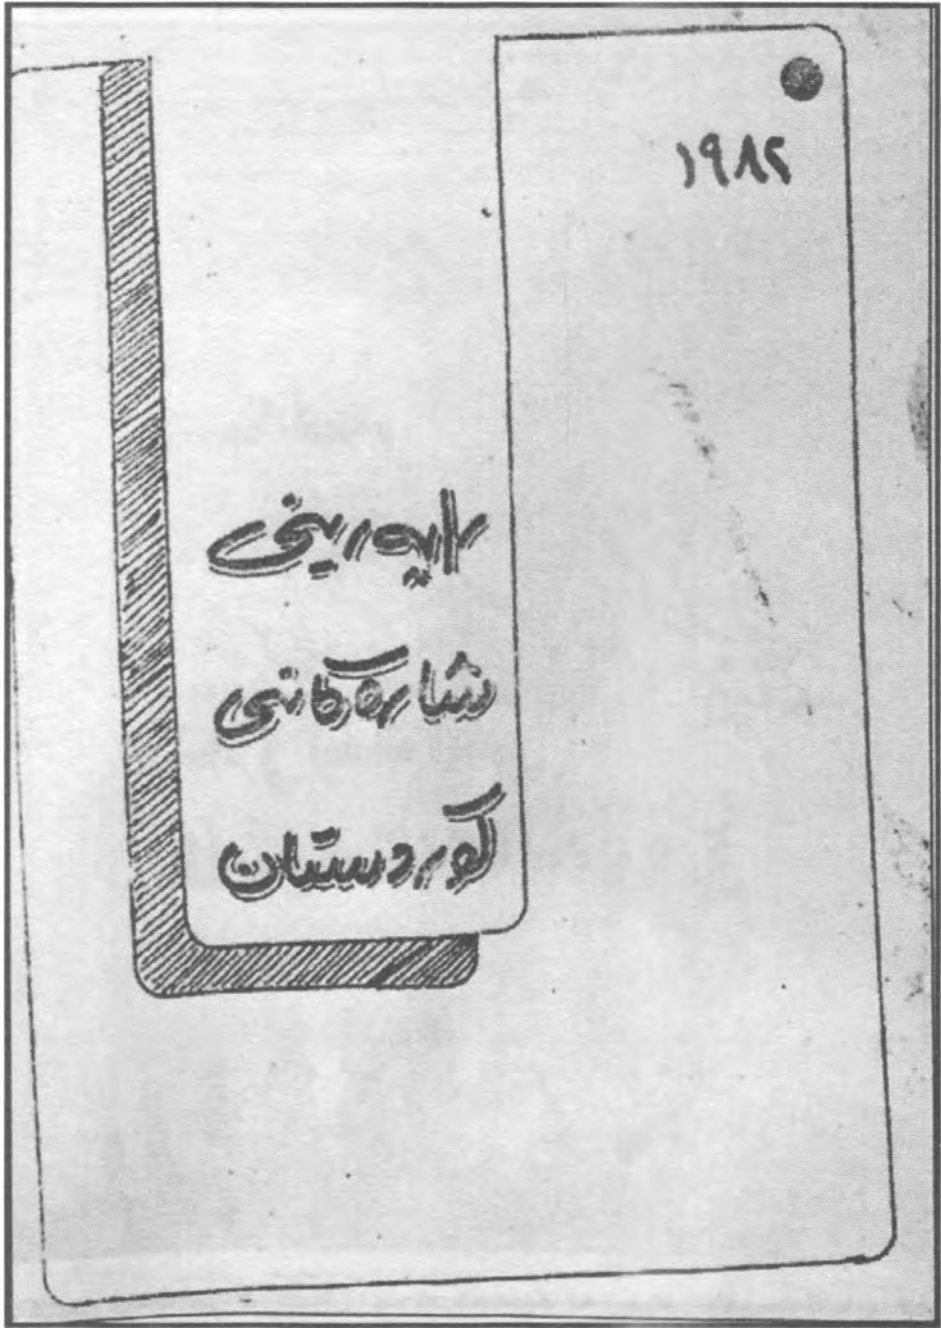 ١٩٨٢
راپەرینی
شارەکانی
کوردستان